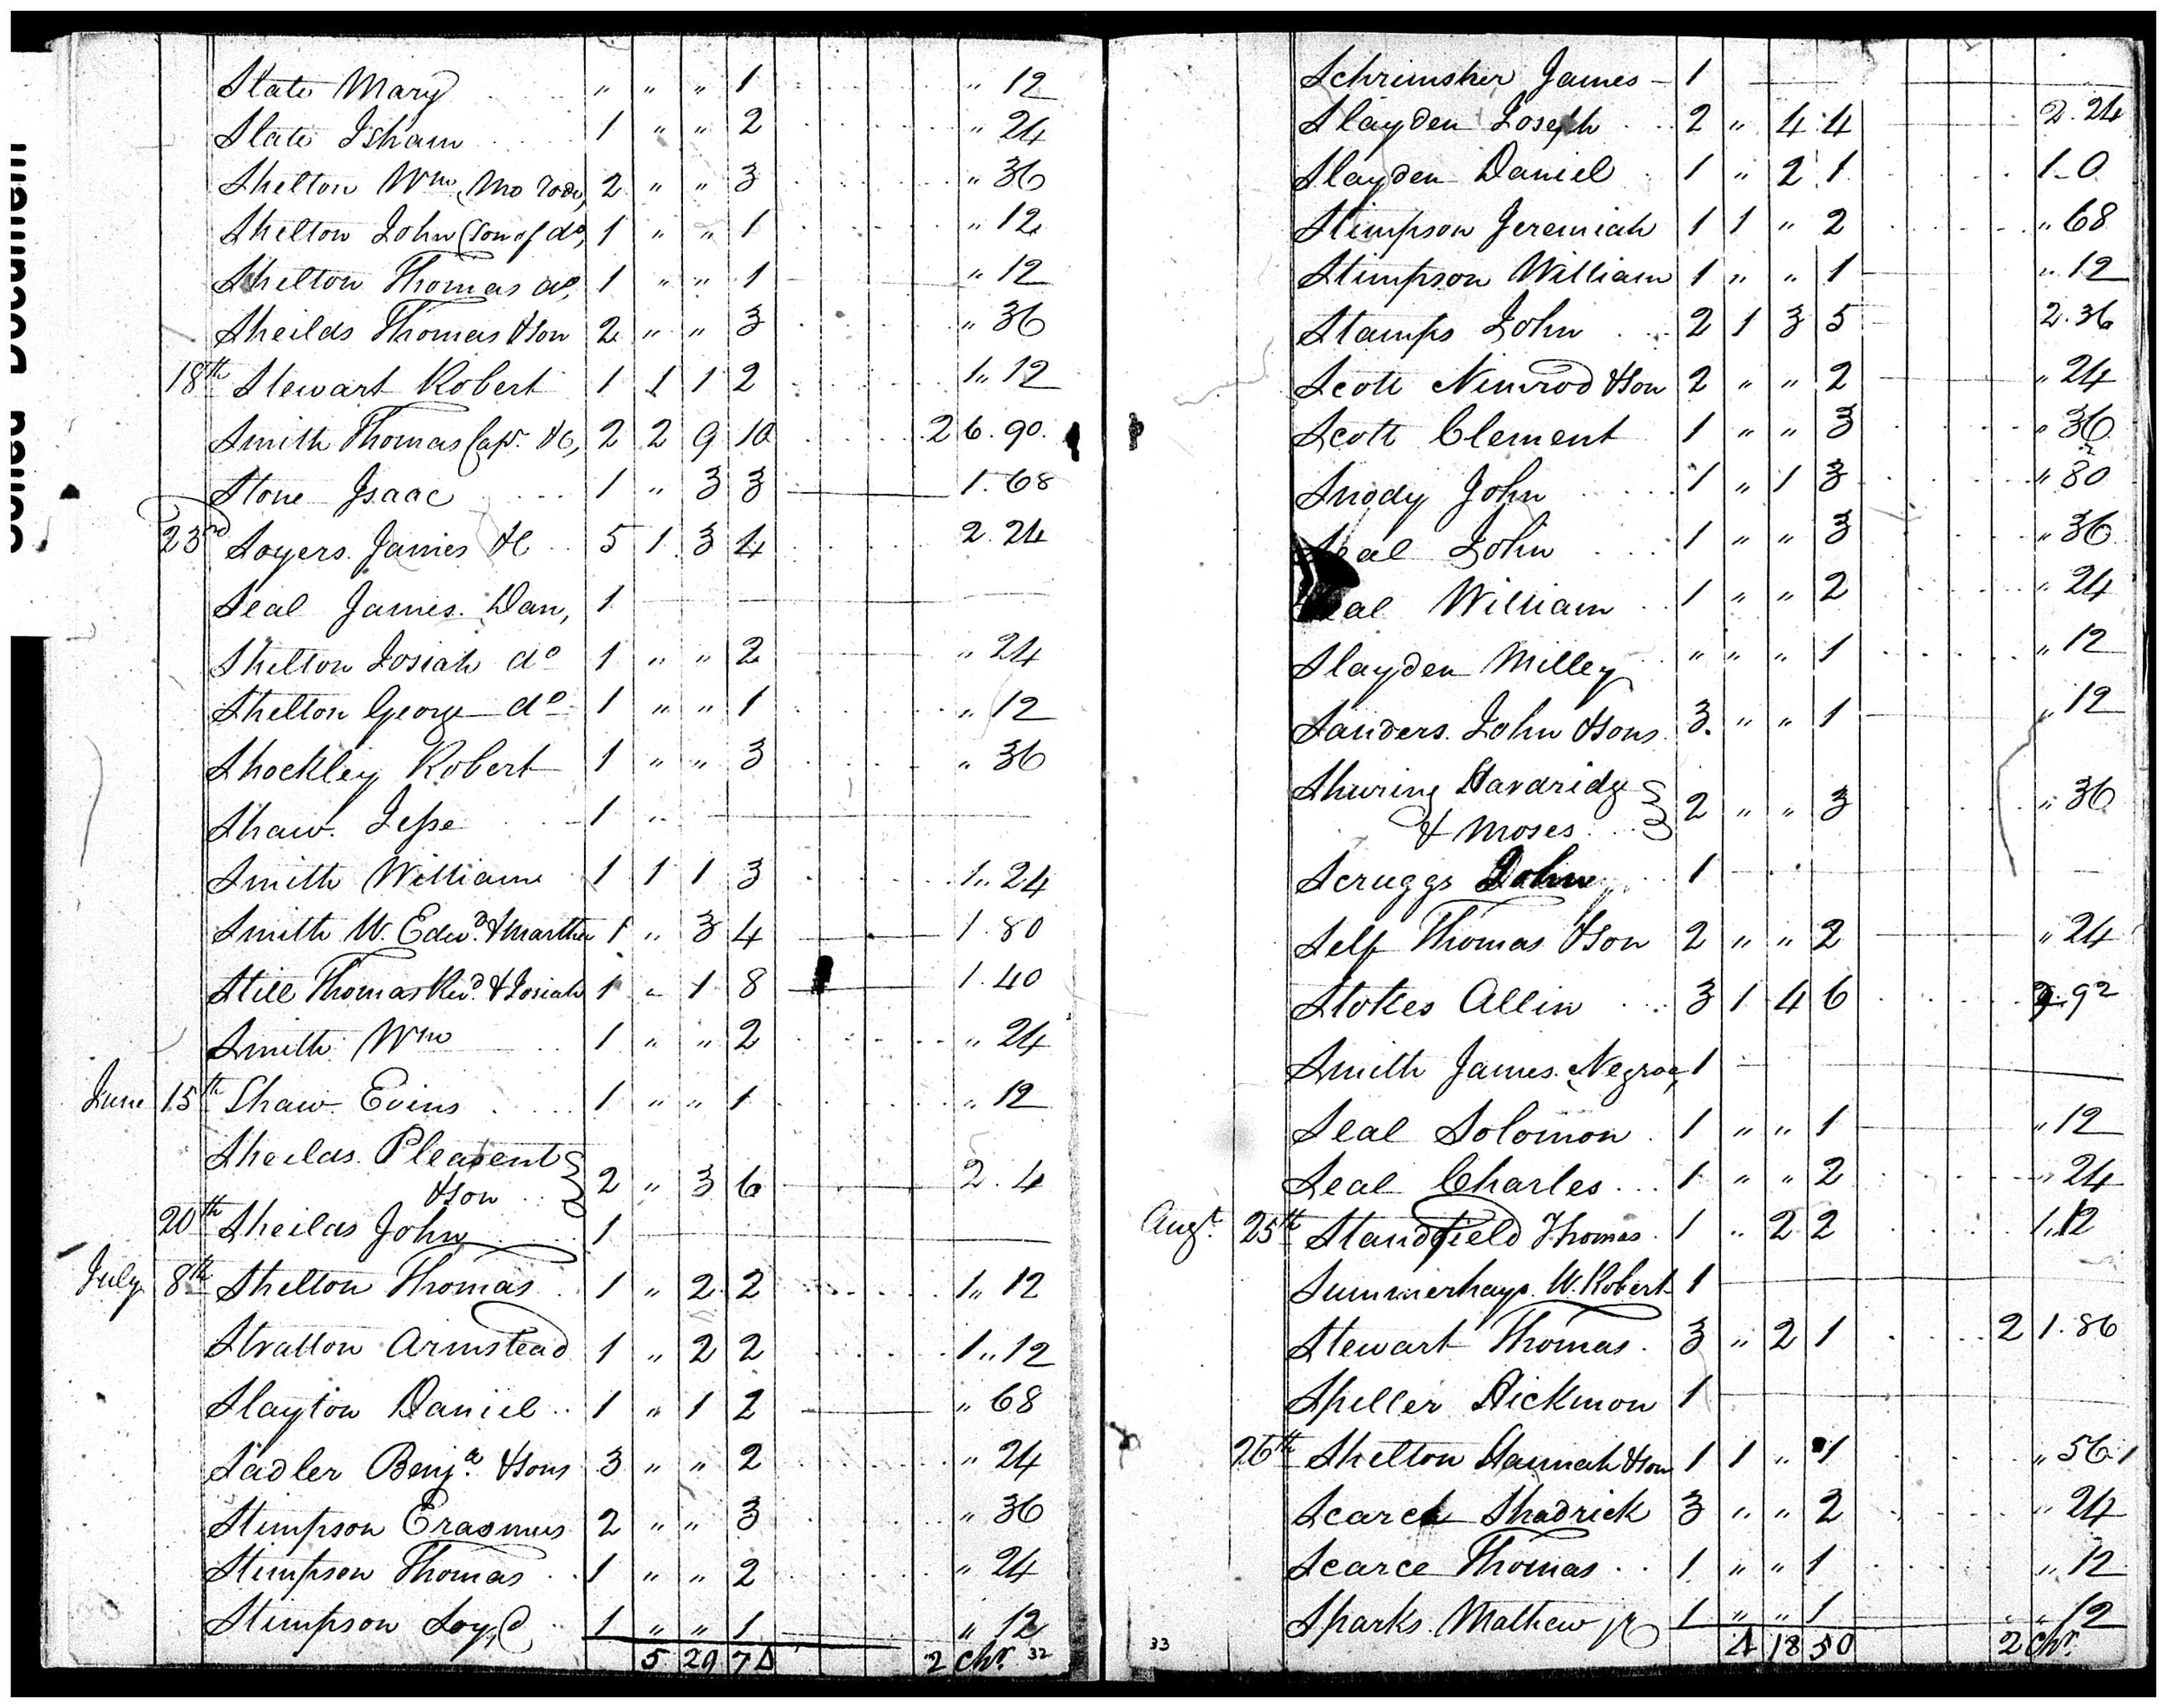 State Mary " " " 1 " 12
Slate Isham 1 " " 2 " 24
Shelton Wm (Mo Rode) 2 " " 3 " 36
Shelton John (son of do) 1 " " 1 " 12
Shelton Thomas do, 1 " " 1 " 12
Sheilds Thomas & son 2 " " 3 " 36
18th Stewart Robert 1 1 1 2 1 " 12
Smith Thomas Cap. &C, 2 2 9 10 2 6. 90.
Stone Isaac 1 " 3 3 1. 68
23rd Soyers James &C 5 1 3 4 2. 24
Seal James. Dan, 1
Shelton Josiah do 1 " " 2 " 24
Shelton George do 1 " " 1 " 12
Shockley Robert 1 " " 3 " 36
Shaw. Jesse 1 "
Smith William 1 1 1 3 1 " 24
Smith W. Edwd. & Martha 1 " 3 4 1. 80
Still Thomas & Josiah 1 " 1 8 1. 40
Smith Wm 1 " " 2 " 24
June 15th Shaw Evins 1 " " 1 " 12
Sheilds. Pleasent
& son 2 " 3 6 2. 4
20th Sheilds John 1
July 8th Shelton Thomas 1 " 2 2 1 " 12
Stratton Armstead 1 " 2 2 1 " 12
Slayton Daniel 1 " 1 2 " 68
Sadler Benja. & sons 3 " " 2 " 24
Stimpson Erasmus 2 " " 3 " 36
Stimpson Thomas 1 " " 2 " 24
Stimpson Loyd 1 " " 1 " 12
5 29 74 2 Chr. 32
Schrimsher James 1
Slayden Joseph 2 " 4 4 2. 24
Slayden Daniel 1 " 2 1 1-0
Stimpson Jeremiah 1 1 " 2 " 68
Stimpson William 1 " " 1 " 12
Stamps John 2 1 3 5 2. 36
Scott Nimrod & son 2 " " 2 " 24
Scott Clement 1 " " 3 " 36
Snody John 1 " 1 3 " 80
Seal John 1 " " 3 " 36
Seal William 1 " " 2 " 24
Slayden Milley " " " 1 " 12
Sanders. John & sons 3. " " 1 " 12
Shuring Hardridge
& Moses 2 " " 3 " 36
Scruggs John 1
Self Thomas & son 2 " " 2 " 24
Stokes Allin 3 1 4 6 2. 92
Smith James. Negroe, 1
Seal Solomon 1 " " 1 " 12
Seal Charles 1 " " 2 " 24
Augt. 25th Standfield Thomas 1 " 2 2 1. 12
Summerhays. W. Robert 1
Stewart Thomas. 3 " 2 1 2 1. 86
Speller Hickmon 1
26th Shelton Hannah & son 1 1 " 1 " 56
Scarce Shadrick 3 " " 2 " 24
Scarce Thomas 1 " " 1 " 12
Sparks. Mathew jr 1 " " 1 " 12
33 4 18 50 2 Chr.